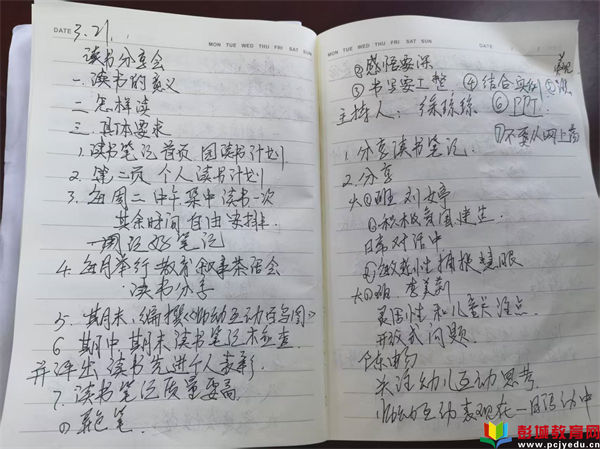 DATE 3.21.
MON TUE WED THU FRI SAT SUN
读书分享会
一.读书的意义
二.怎样读
三.具体要求
1.读书笔记首页 园读书计划
2.第二页 个人读书计划
3.每周二中午集中读书一次
其余时间自由安排.
周记好笔记
4.每月举行教育叙事茶话会
读书分享
5.期末,编撰《师幼互动百鸟图》
6 期中期末读书笔记检查.
并评出读书先进个人表彰.
7.读书笔记质量要高
① 笔.
MON TUE WED THU FRI SAT SUN DATE
②感悟要深
③书写要工整 ④结合实例 ⑤
主持人: 徐琼琼 ⑥PPT.
⑦不要从网上高
1.分享读书笔记:
2.分享
大①班 刘婷
①积极氛围建立.
日常对话中
②敏感性捕捉慧眼
大②班. 李美
灵活性和儿童关注点.
开放式问题.
陈
关注幼儿互动思考.
师幼互动表现在一日活动中
彭城教育网
www.pcjyedu.cn